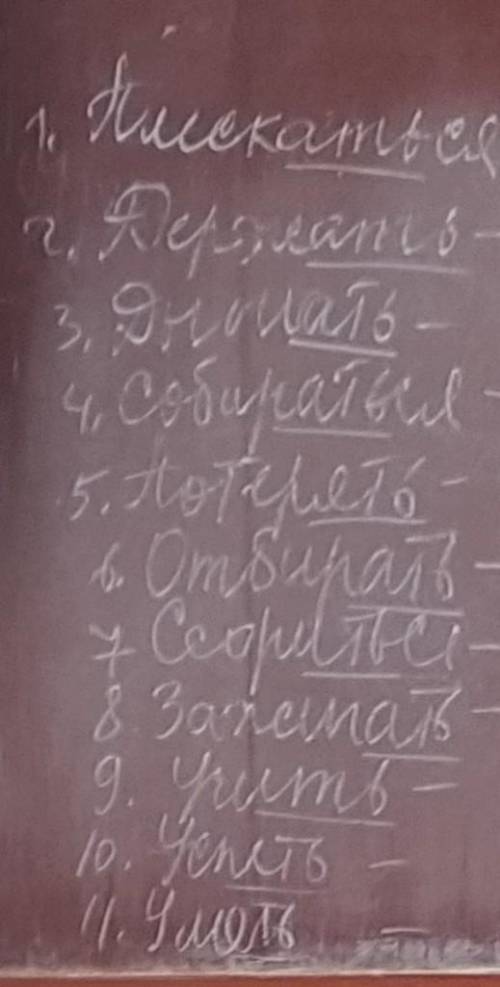 1. Плескаться
2. Держать -
3. Дышать -
4. Собираться -
5. Потерять -
6. Отбирать -
7 Ссориться -
8 Зажигать -
9. Учить -
10. Успеть -
11. Уметь -